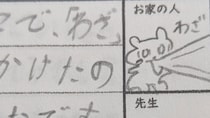 こで、「わざ」
かけたの
お家の人
わざ
先生